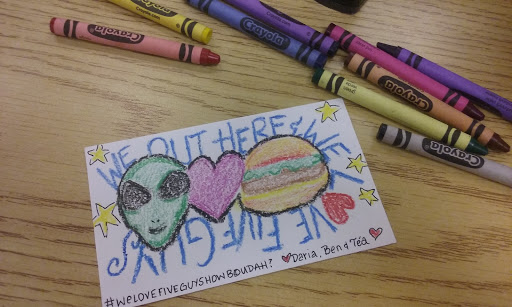 Crayola
Crayola
Crayola
Crayola
Crayola
Crayola
WE OUT HERE & WE
L♥VE FIVE GUYS
#WELOVEFIVEGUYSHOWBOUDAH?
♥Daria, Ben & Téa♥